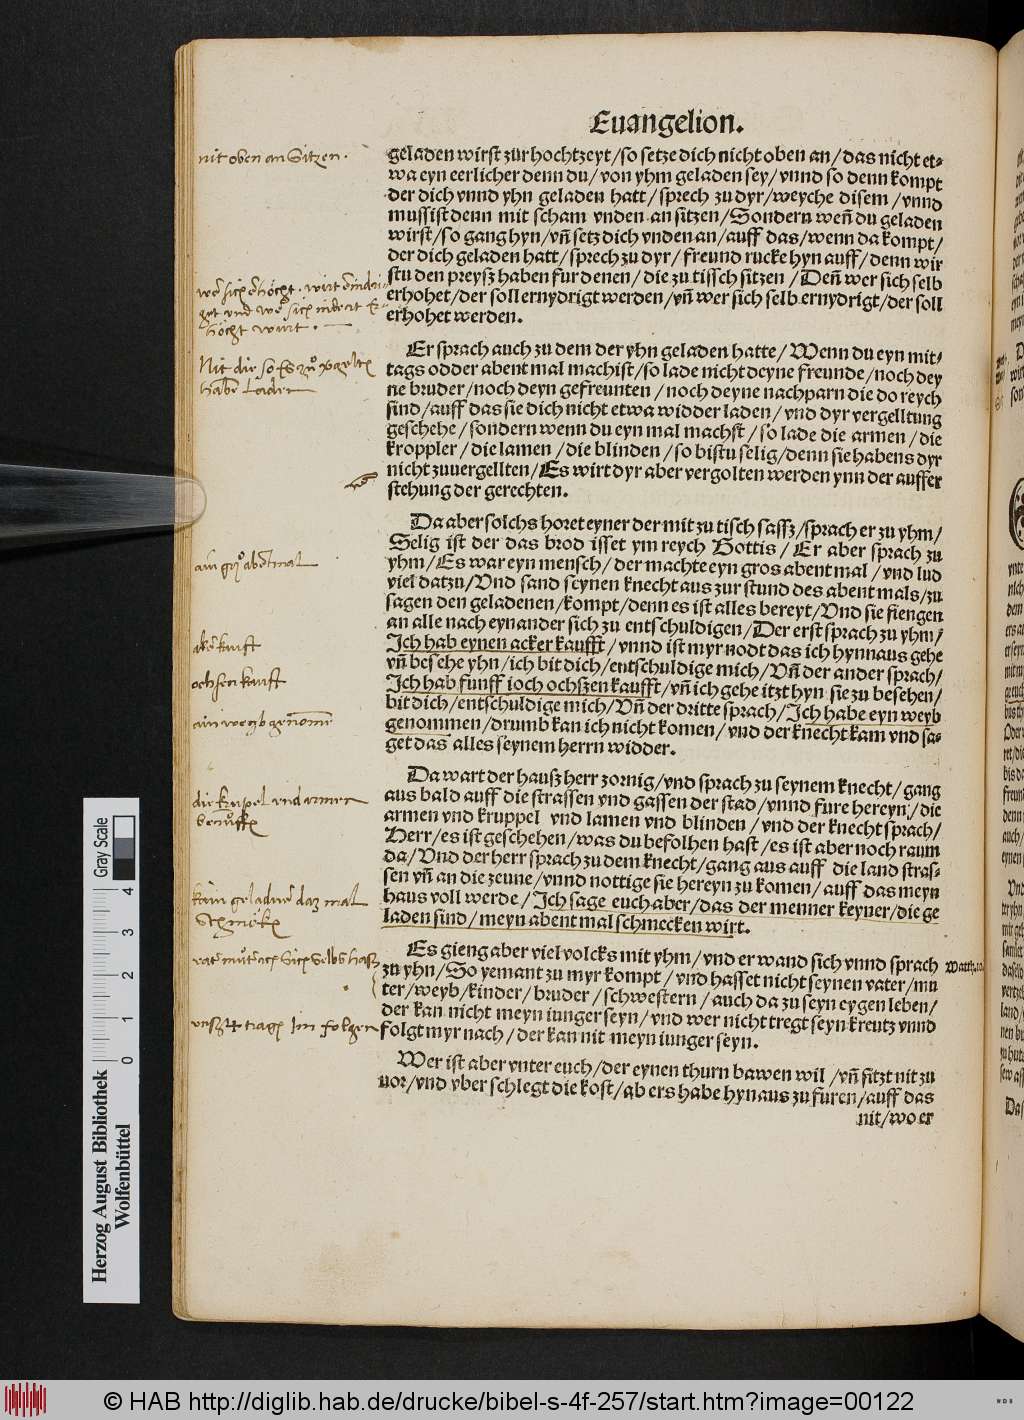 Euangelion.
nit oben an Sitzen.
geladen wirst zur hochtzeyt/so setze dich nicht oben an/das nicht et-
wa eyn eerlicher denn du/von yhm geladen sey/vnnd so denn kompt
der dich vnnd yhn geladen hatt/sprech zu dyr/weyche disem/vnnd
mussist denn mit scham vnden an sitzen/Sondern weñ du geladen
wirst/so gang hyn/vñ setz dich vnden an/auff das/wenn da kompt/
der dich geladen hatt/sprech zu dyr/freund rucke hyn auff/denn wir
stu den preysz haben fur denen/die zu tissch sitzen/Deñ wer sich selb
erhohet/der soll ernydrigt werden/vñ wer sich selb ernydrigt/der soll
erhohet werden.
höcht wurt.
Er sprach auch zu dem der yhn geladen hatte/Wenn du eyn mit-
tags odder abent mal machist/so lade nicht deyne freunde/noch dey
ne bruder/noch deyn gefreunten/noch deyne nachparn die do reych
sind/auff das sie dich nicht etwa widder laden/vnd dyr vergelltung
geschehe/sondern wenn du eyn mal machst/so lade die armen/die
kroppler/die lamen/die blinden/so bistu selig/denn sie habens dyr
nicht zuuergellten/Es wirt dyr aber vergolten werden ynn der auffer
stehung der gerechten.
Da aber solchs horet eyner der mit zu tisch sassz/sprach er zu yhm/
Selig ist der das brod isset ym reych Gottis/Er aber sprach zu
yhm/Es war eyn mensch/der machte eyn gros abent mal/vnd lud
viel datzu/Vnd sand seynen knecht aus zur stund des abent mals/zu
sagen den geladenen/kompt/denn es ist alles bereyt/Vnd sie fiengen
an alle nach eynander sich zu entschuldigen/Der erst sprach zu yhm/
Ich hab eynen acker kaufft/vnnd ist myr nodt das ich hynnaus gehe
vñ besehe yhn/ich bit dich/entschuldige mich/Vñ der ander sprach/
Ich hab funff ioch ochszen kaufft/vñ ich gehe itzt hyn sie zu besehen/
bit dich/entschuldige mich/Vñ der dritte sprach/Ich habe eyn weyb
genommen/drumb kan ich nicht komen/vnd der knecht kam vnd sa-
get das alles seynem herrn widder.
ochsen kauft
Da wart der hausz herr zornig/vnd sprach zu seynem knecht/gang
aus bald auff die strassen vnd gassen der stad/vnnd fure hereyn/die
armen vnd kruppel vnd lamen vnd blinden/vnd der knecht sprach/
Herr/es ist geschehen/was du befolhen hast/es ist aber noch raum
da/Vnd der herr sprach zu dem knecht/gang aus auff die land stras-
sen vñ an die zeune/vnnd nottige sie hereyn zu komen/auff das meyn
haus voll werde/Ich sage euch aber/das der menner keyner/die ge
laden sind/meyn abent mal schmecken wirt.
Es gieng aber viel volcks mit yhm/vnd er wand sich vnnd sprach
Matth.10.
zu yhn/So yemant zu myr kompt/vnd hasset nicht seynen vater/mu
ter/weyb/kinder/bruder/schwestern/auch da zu seyn eygen leben/
der kan nicht meyn iunger seyn/vnd wer nicht tregt seyn kreutz vnnd
folgt myr nach/der kan nit meyn iunger seyn.
Wer ist aber vnter euch/der eynen thurn bawen wil/vñ sitzt nit zu
uor/vnd vber schlegt die kost/ab ers habe hynaus zu furen/auff das
nit/wo er
Herzog August Bibliothek
Wolfenbüttel
Gray Scale
0 1 2 3 4
© HAB http://diglib.hab.de/drucke/bibel-s-4f-257/start.htm?image=00122